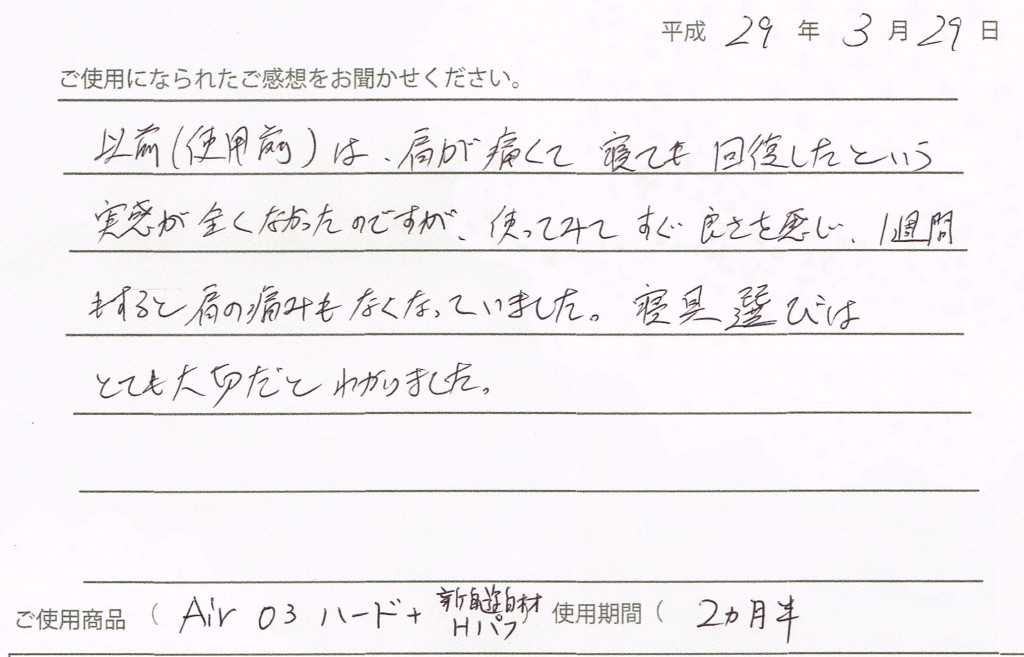 平成 29 年 3 月 29 日
ご使用になられたご感想をお聞かせください。
以前(使用前)は、肩が痛くて 寝ても 回復したという
実感が全くなかったのですが、使ってみて すぐ良さを感じ、1週間
もすると肩の痛みもなくなっていました。寝具選びは
とても大切だと わかりました。
ご使用商品 ( Air 03 ハード+ Hパフ ) 使用期間 ( 2ヵ月半